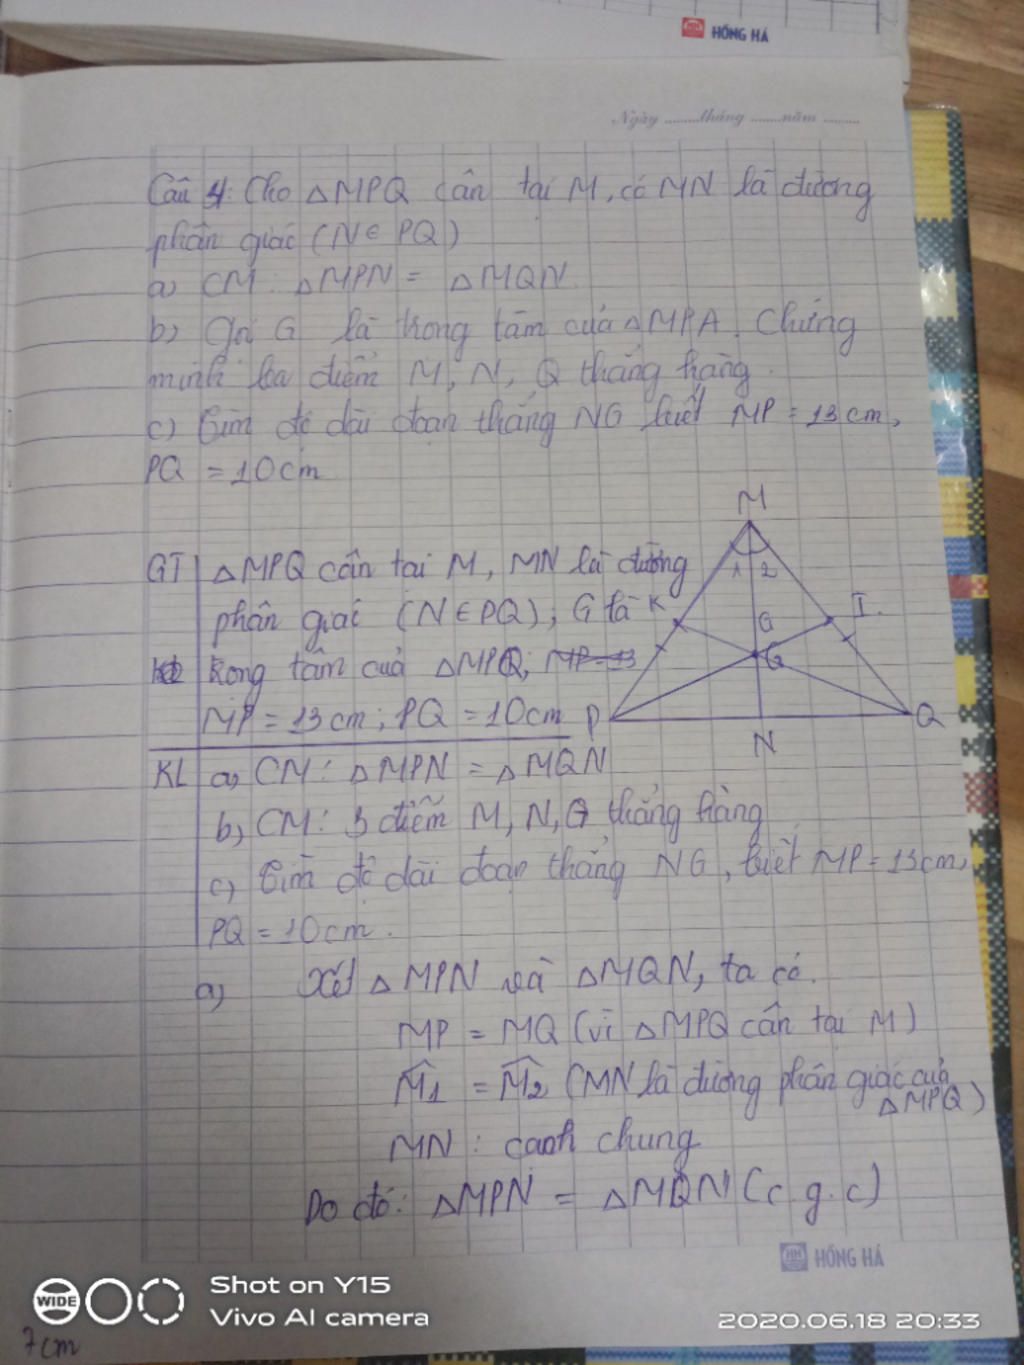 HỒNG HÀ
Ngày ........tháng .......năm ........
Câu 4: Cho △MPQ cân tại M, có MN là đường
phân giác (N∈ PQ)
a) CM: △MPN = △MQN
b) Gọi G là trọng tâm của △MPA. Chứng
minh ba điểm M, N, Q thẳng hàng.
c) Tìm độ dài đoạn thẳng NG biết MP = 13 cm,
PQ = 10 cm
M
1 2
K I.
G
G
P Q
N
GT △MPQ cân tại M, MN là đường
phân giác (N∈PQ); G là
trọng tâm của △MPQ; MP=13
MP = 13 cm; PQ = 10 cm
KL a) CM: △MPN = △MQN
b) CM: 3 điểm M, N, G thẳng hàng
c) Tìm độ dài đoạn thẳng NG, biết MP = 13 cm,
PQ = 10 cm.
a) Xét △MPN và △MQN, ta có.
MP = MQ (vì △MPQ cân tại M)
M̂1 = M̂2 (MN là đường phân giác của
△MPQ)
MN: cạnh chung
Do đó: △MPN = △MQN (c.g.c)
HỒNG HÀ
WIDE
Shot on Y15
Vivo AI camera
2020.06.18 20:33
7cm